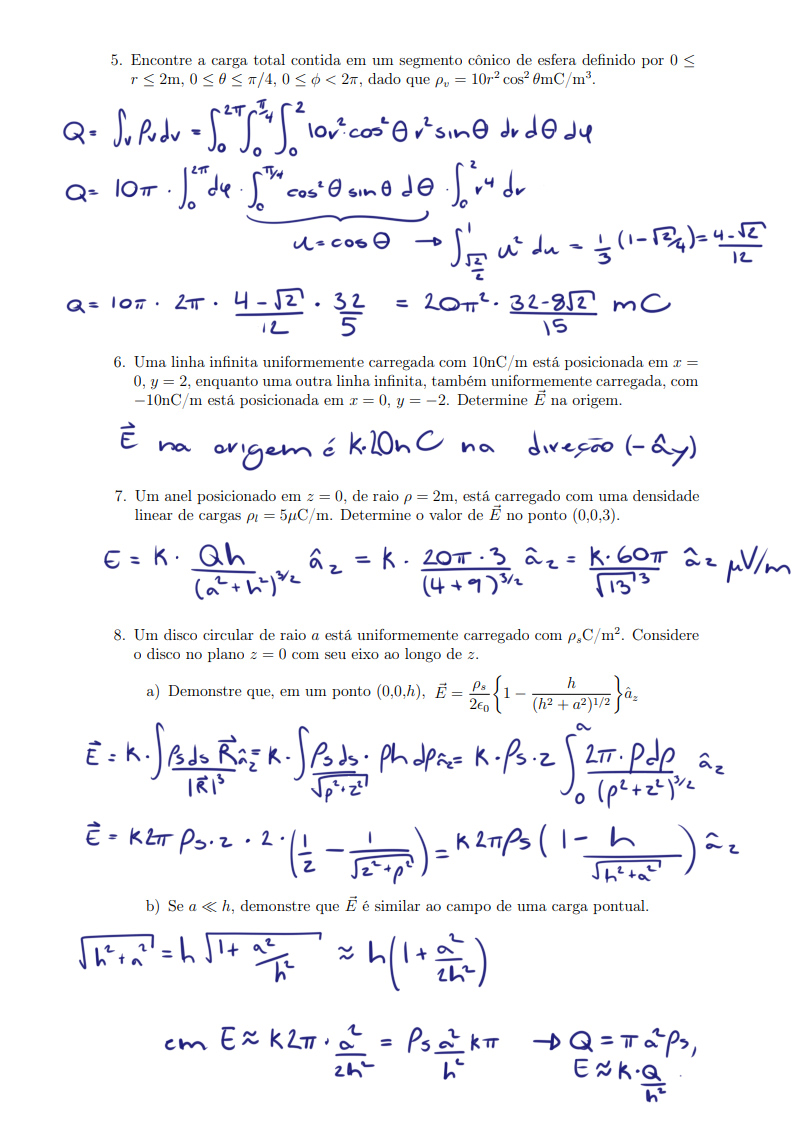 5. Encontre a carga total contida em um segmento cônico de esfera definido por 0 ≤
r ≤ 2m, 0 ≤ θ ≤ π/4, 0 ≤ ϕ < 2π, dado que ρ_v = 10r² cos² θmC/m³.
Q = ∫_v ρv dv = ∫_0^{2π} ∫_0^{π/4} ∫_0^2 10r² · cos²θ r² sinθ dr dθ dφ
Q = 10π · ∫_0^{2π} dφ · ∫_0^{π/4} cos²θ sinθ dθ · ∫_0^2 r⁴ dr
u = cosθ → ∫_{√2/2}^1 u² du = 1/3 (1 - √2/4) = (4 - √2)/12
Q = 10π · 2π · (4 - √2)/12 · 32/5 = 20π² · (32 - 8√2)/15 mC
6. Uma linha infinita uniformemente carregada com 10nC/m está posicionada em x =
0, y = 2, enquanto uma outra linha infinita, também uniformemente carregada, com
−10nC/m está posicionada em x = 0, y = −2. Determine E⃗ na origem.
E⃗ na origem é K·20nC na direção (-ây)
7. Um anel posicionado em z = 0, de raio ρ = 2m, está carregado com uma densidade
linear de cargas ρ_l = 5μC/m. Determine o valor de E⃗ no ponto (0,0,3).
E = K · Qh/(a² + h²)^{3/2} â_z = K · (20π · 3)/(4 + 9)^{3/2} â_z = (K · 60π)/√13³ â_z μV/m
8. Um disco circular de raio a está uniformemente carregado com ρ_sC/m². Considere
o disco no plano z = 0 com seu eixo ao longo de z.
a) Demonstre que, em um ponto (0,0,h), E⃗ = ρ_s/2ϵ_0 {1 − h/(h² + a²)^{1/2}} â_z
E⃗ = K · ∫ (ρs ds R⃗)/|R⃗|³ â_z = K · ∫ (ρs ds)/√(ρ² + z²) · ρh dρ â_z = K · ρs · z ∫_0^a (2π · ρdρ)/(ρ² + z²)^{3/2} â_z
E⃗ = K2π ρs · z · 2 · (1/z - 1/√(z² + ρ²)) = K2πρs (1 - h/√(h² + a²)) â_z
b) Se a ≪ h, demonstre que E⃗ é similar ao campo de uma carga pontual.
√(h² + a²) = h √(1 + a²/h²) ≈ h(1 + a²/2h²)
em E ≈ K2π · a²/2h² = ρs a²/h² kπ → Q = πa²ρs,
E ≈ K · Q/h²